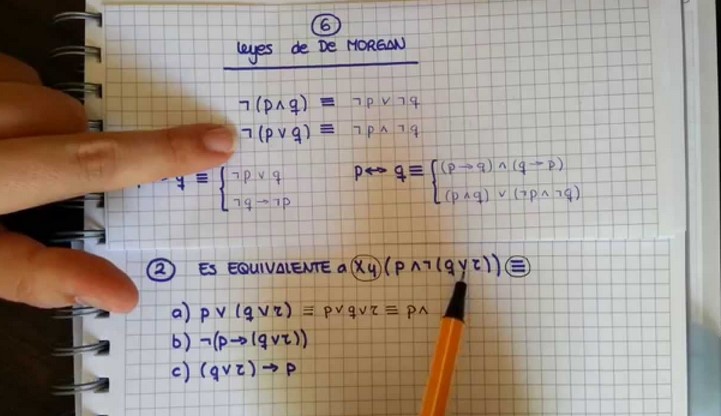 6
Leyes de DE MORGAN
¬(p∧q) ≡ ¬p ∨ ¬q
¬(p∨q) ≡ ¬p ∧ ¬q
q ≡ { ¬p ∨ q
¬q → ¬p
p ↔ q ≡ { (p→q) ∧ (q→p)
(p∧q) ∨ (¬p∧¬q)
2 ES EQUIVALENTE a X4 (p∧¬(q∨r)) ≡
a) p ∨ (q∨r) ≡ p∨q∨r ≡ p∧
b) ¬(p→(q∨r))
c) (q∨r) → p